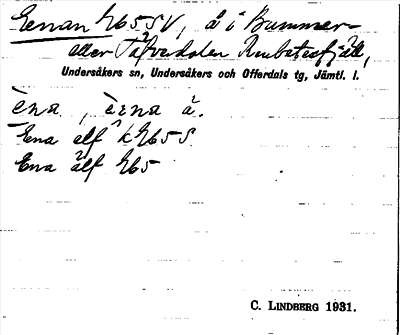 Eenan 465 SV, å i Bummer-
eller Tåtvedalen Rubetesfjäll,
Undersåkers sn, Undersåkers och Offerdals tg, Jämtl. l.
èna, èena å.
Ena elf k 465 S
Ena älf 465
C. LINDBERG 1931.